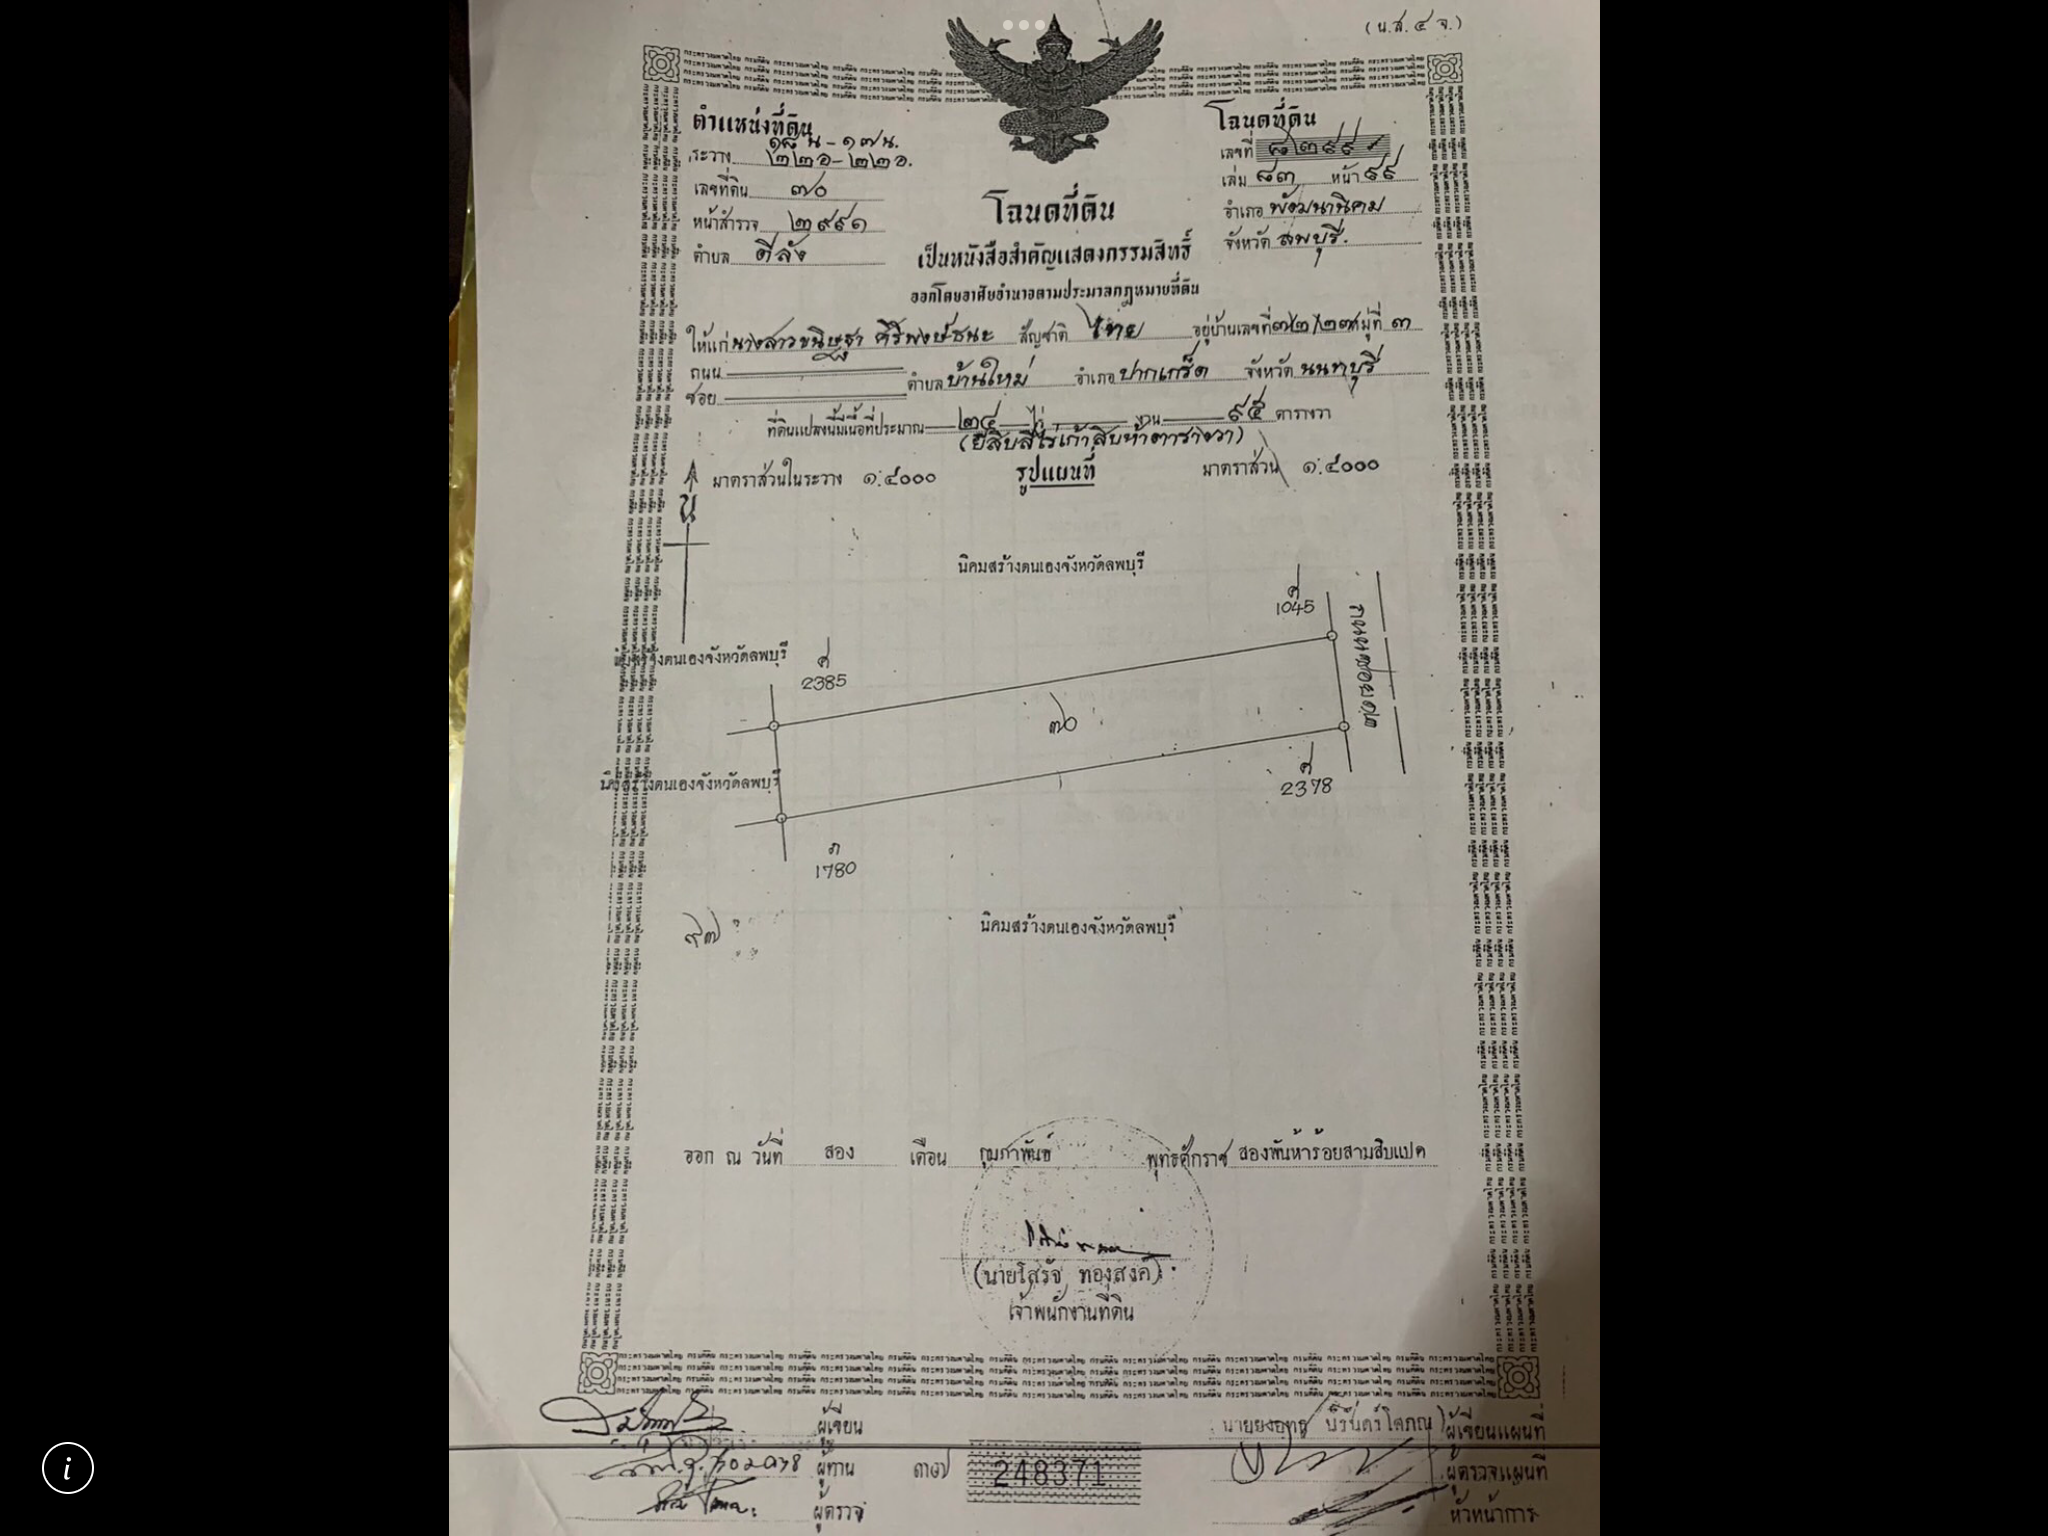 (น.ส.๔ จ.)
ตำแหน่งที่ดิน
ระวาง ๑๘น-๑๗น.
๒๒๖-๒๒๖.
เลขที่ดิน ๗๐
หน้าสำรวจ ๒๙๙๑
ตำบล ดีลัง
โฉนดที่ดิน
เลขที่
เล่ม ๘๓ หน้า ๙๙
อำเภอ พัฒนานิคม
จังหวัด ลพบุรี.
โฉนดที่ดิน
เป็นหนังสือสำคัญแสดงกรรมสิทธิ์
ออกโดยอาศัยอำนาจตามประมวลกฎหมายที่ดิน
ให้แก่ นางสาวขนิษฐา ศิริพงษ์ธนะ สัญชาติ ไทย อยู่บ้านเลขที่ หมู่ที่ ๓
ถนน
ซอย ตำบล บ้านใหม่ อำเภอ ปากเกร็ด จังหวัด นนทบุรี
ที่ดินแปลงนี้มีเนื้อที่ประมาณ ๒๔ ไร่ งาน ๙๕ ตารางวา
(ยี่สิบสี่ไร่เก้าสิบห้าตารางวา)
น มาตราส่วนในระวาง ๑:๔๐๐๐ รูปแผนที่ มาตราส่วน ๑:๔๐๐๐
นิคมสร้างตนเองจังหวัดลพบุรี
1045
สร้างตนเองจังหวัดลพบุรี
2385
ถนนซอย
๗๐
นิคมสร้างตนเองจังหวัดลพบุรี
2378
1780
นิคมสร้างตนเองจังหวัดลพบุรี
ออก ณ วันที่ สอง เดือน กุมภาพันธ์ พุทธศักราช สองพันห้าร้อยสามสิบแปด
(นายโสรัจ ทองสงค์)
เจ้าพนักงานที่ดิน
ผู้เขียน
ผู้ทาน
ผู้ตรวจ
248371
นายยงยุทธ ผู้เขียนแผนที่
ผู้ตรวจแผนที่
หัวหน้าการ